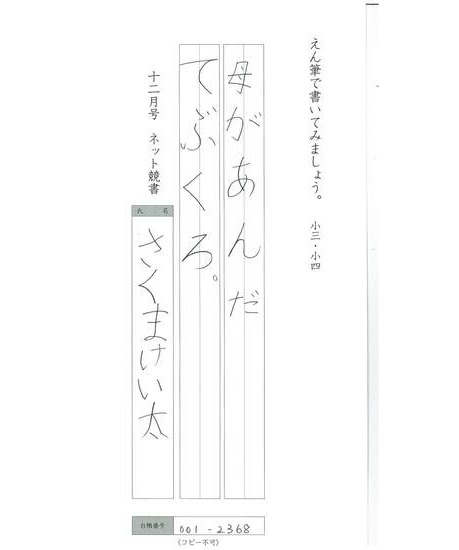 えん筆で書いてみましょう。 小三・小四
母があんだ
てぶくろ。
十二月号 ネット競書
氏 名
さくまけい太
台帳番号 001-2368
(コピー不可)